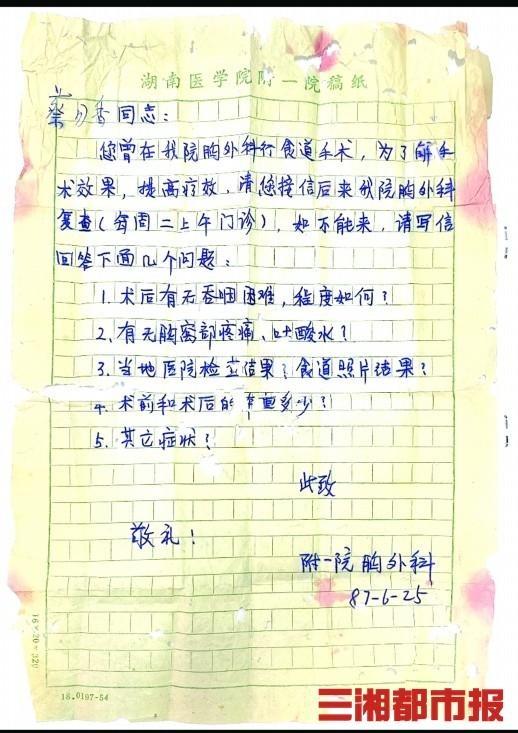 湖南医学院附一院稿纸
蔡月香同志:
您曾在我院胸外科行食道手术,为了解手
术效果,提高疗效,请您接信后来我院胸外科
复查(每周二上午门诊),如不能来,请写信
回答下面几个问题:
1.术后有无吞咽困难,程度如何?
2.有无胸窝部疼痛、吐酸水?
3.当地医院检查结果?食道照片结果?
4.术前和术后的体重多少?
5.其它症状?
此致
敬礼!
附一院胸外科
87-6-25
16×20=320
18.0197-54
三湘都市报